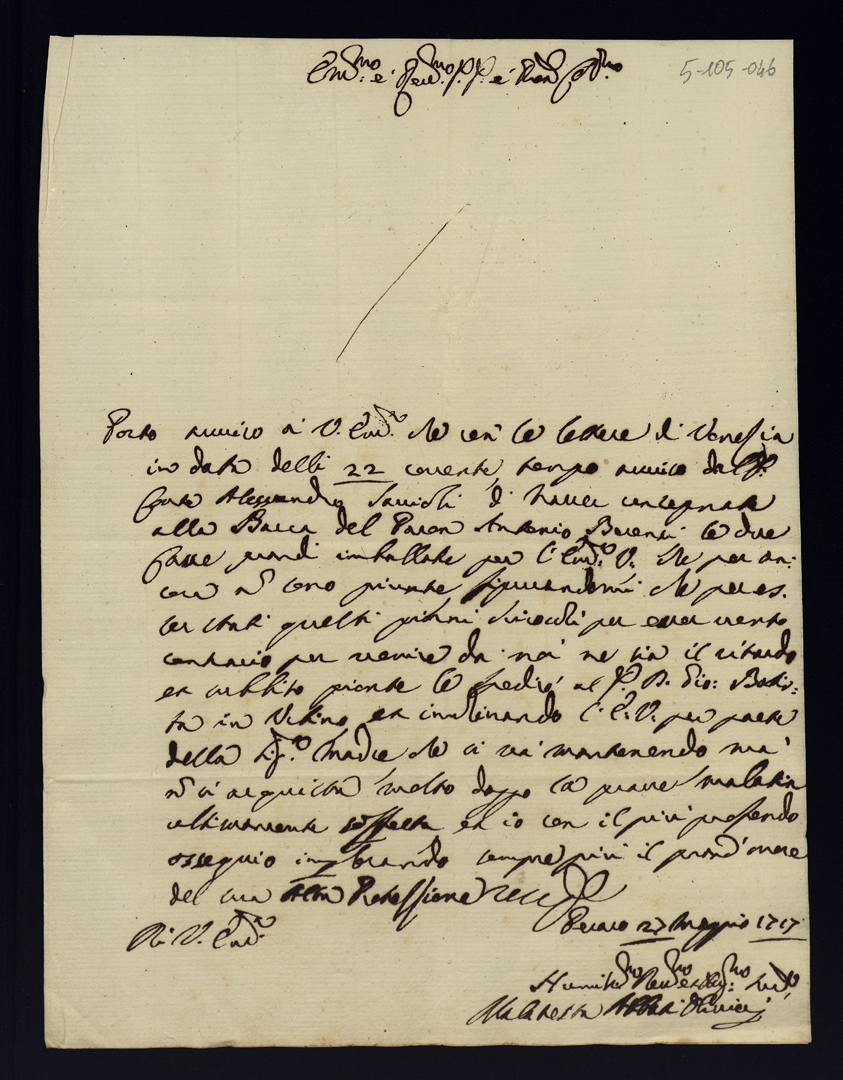 Em.mo e Rev.mo P.re e Pron Col.mo
5-105-046
Porto avviso a V. Em.a che con le lettere di Venezia
in data delli 22 corrente, tengo avviso dal S.r
Conte Alessandro Savioli d'haver consegnate
alla Barca del Paron Antonio due
Casse grandi imballate per l'Em.a V. che per an:
cora n̄ sono giunte che per es.
ser stati questi giorni per esser vento
contrario per venire da noi ne sia il ritardo
et subbito gionte le spedirò al S.r D. Gio: Batis:
ta in Urbino, et inclinando l'E. V. per parte
della Sig.ra Madre che si và mantenendo mà
n̄ si acquista molto doppo la grave malatia
ultimamente sofferta et io con il più profondo
osseguio sempre più il grand'onore
del sua Alta Protessione
Pesaro 27 Maggio 1717
Di V. Em.a
Humiliss.mo Dev.mo et Obl.mo Ser.e
Malatesta Abbati Olivieri